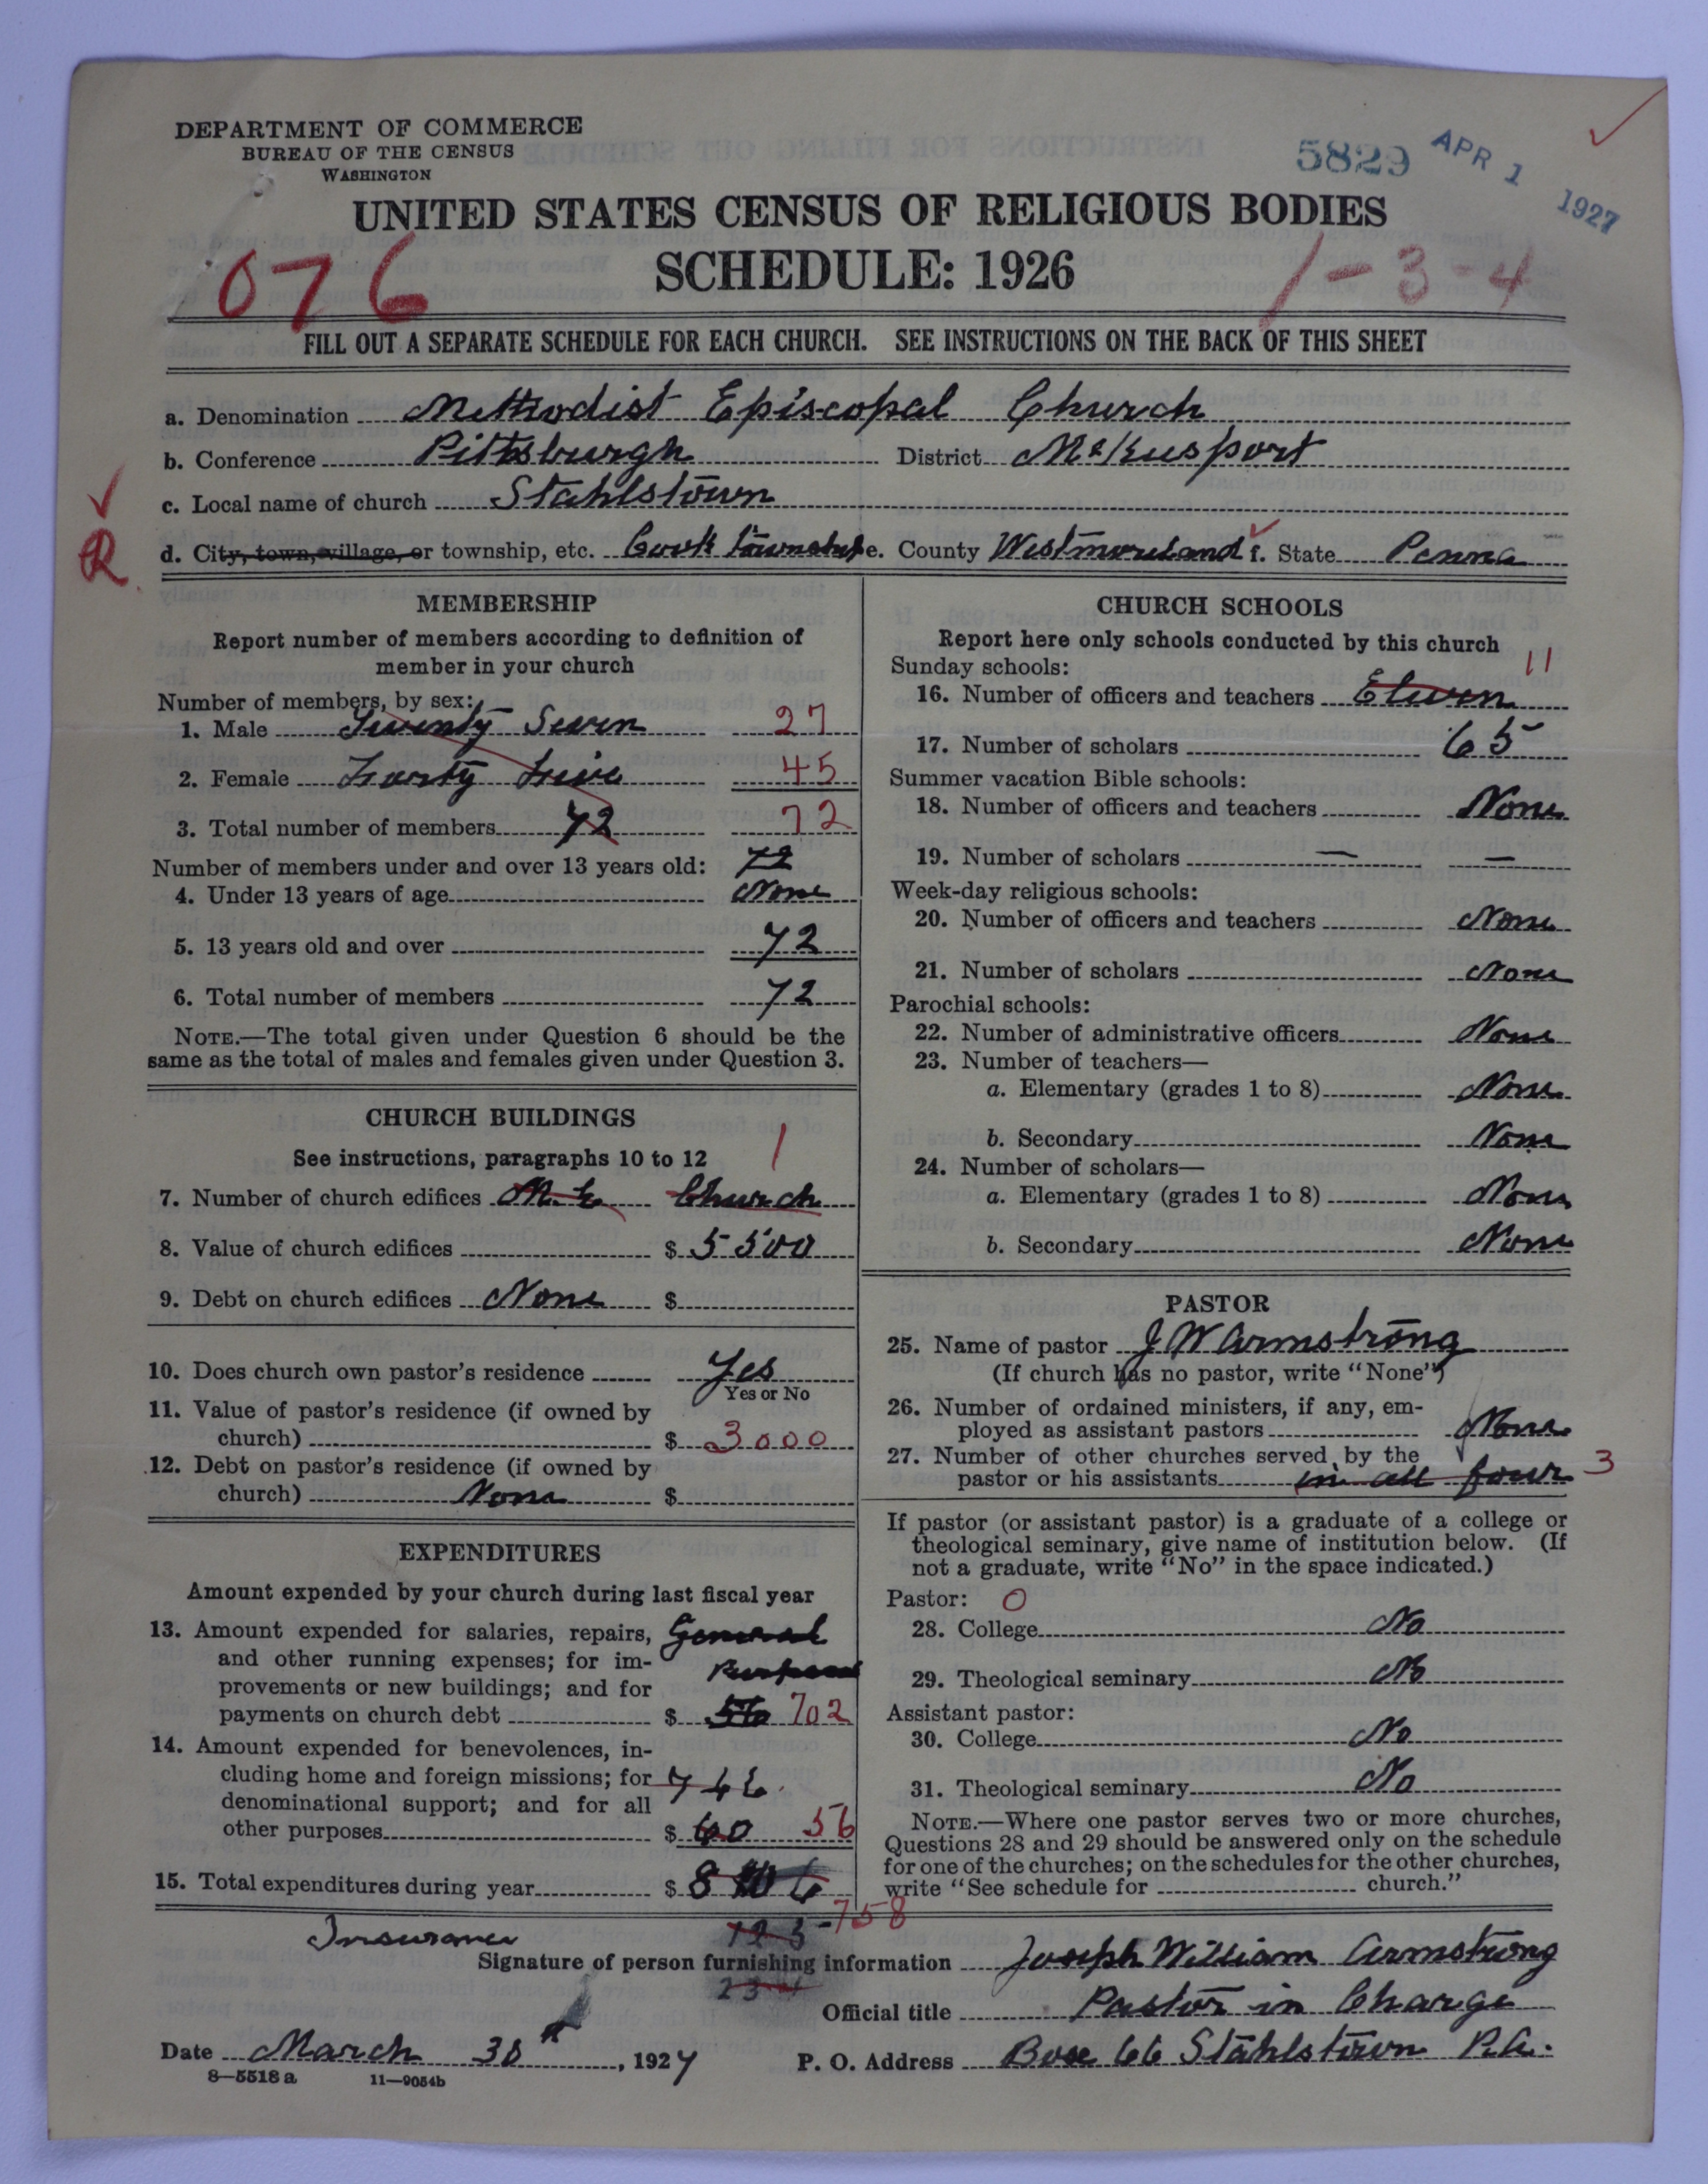 DEPARTMENT OF COMMERCE
BUREAU OF THE CENSUS
WASHINGTON
5829 APR 1 1927
UNITED STATES CENSUS OF RELIGIOUS BODIES
SCHEDULE: 1926
076
1-3-4
FILL OUT A SEPARATE SCHEDULE FOR EACH CHURCH. SEE INSTRUCTIONS ON THE BACK OF THIS SHEET
a. Denomination Methodist Episcopal Church
b. Conference Pittsburgh District McKeesport
c. Local name of church Stahlstown
R
d. City, town, village, or township, etc. Cook township e. County Westmoreland f. State Penna
MEMBERSHIP
Report number of members according to definition of
member in your church
Number of members, by sex:
1. Male Twenty Seven 27
2. Female Forty Five 45
3. Total number of members 72 72
Number of members under and over 13 years old: 72
4. Under 13 years of age None
5. 13 years old and over 72
6. Total number of members 72
NOTE.—The total given under Question 6 should be the
same as the total of males and females given under Question 3.
CHURCH BUILDINGS
See instructions, paragraphs 10 to 12 1
7. Number of church edifices M.E. Church
8. Value of church edifices $ 5500
9. Debt on church edifices None $
10. Does church own pastor's residence Yes
Yes or No
11. Value of pastor's residence (if owned by
church) $ 3000
12. Debt on pastor's residence (if owned by
church) None $
EXPENDITURES
Amount expended by your church during last fiscal year
13. Amount expended for salaries, repairs, General
and other running expenses; for im-
provements or new buildings; and for
payments on church debt $ 56 702
14. Amount expended for benevolences, in-
cluding home and foreign missions; for 746
denominational support; and for all
other purposes $ 60 56
15. Total expenditures during year $ 8 6
758
CHURCH SCHOOLS
Report here only schools conducted by this church
Sunday schools: 11
16. Number of officers and teachers Eleven
17. Number of scholars 65
Summer vacation Bible schools:
18. Number of officers and teachers None
19. Number of scholars — —
Week-day religious schools:
20. Number of officers and teachers None
21. Number of scholars None
Parochial schools:
22. Number of administrative officers None
23. Number of teachers—
a. Elementary (grades 1 to 8) None
b. Secondary None
24. Number of scholars—
a. Elementary (grades 1 to 8) None
b. Secondary None
PASTOR
25. Name of pastor J W Armstrong
(If church has no pastor, write "None")
26. Number of ordained ministers, if any, em-
ployed as assistant pastors None
27. Number of other churches served by the
pastor or his assistants in all four 3
If pastor (or assistant pastor) is a graduate of a college or
theological seminary, give name of institution below. (If
not a graduate, write "No" in the space indicated.)
Pastor: 0
28. College No
29. Theological seminary No
Assistant pastor:
30. College No
31. Theological seminary No
NOTE.—Where one pastor serves two or more churches,
Questions 28 and 29 should be answered only on the schedule
for one of the churches; on the schedules for the other churches,
write "See schedule for church."
Insurance 123
Signature of person furnishing information Joseph William Armstrong
234
Official title Pastor in Charge
Date March 30th, 1927 P. O. Address Box 66 Stahlstown P.A.
8—5518 a 11—9054b